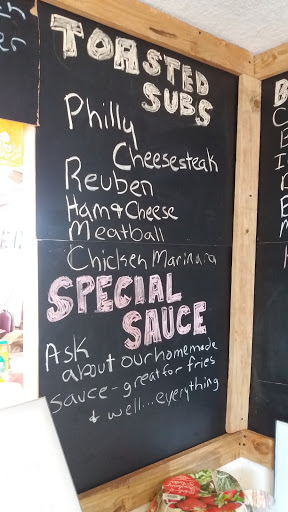 TOASTED
SUBS
Philly
Cheesesteak
Reuben
Ham & Cheese
Meatball
Chicken Marinara
SPECIAL
SAUCE
Ask
about our homemade
sauce - great for fries
& well... everything